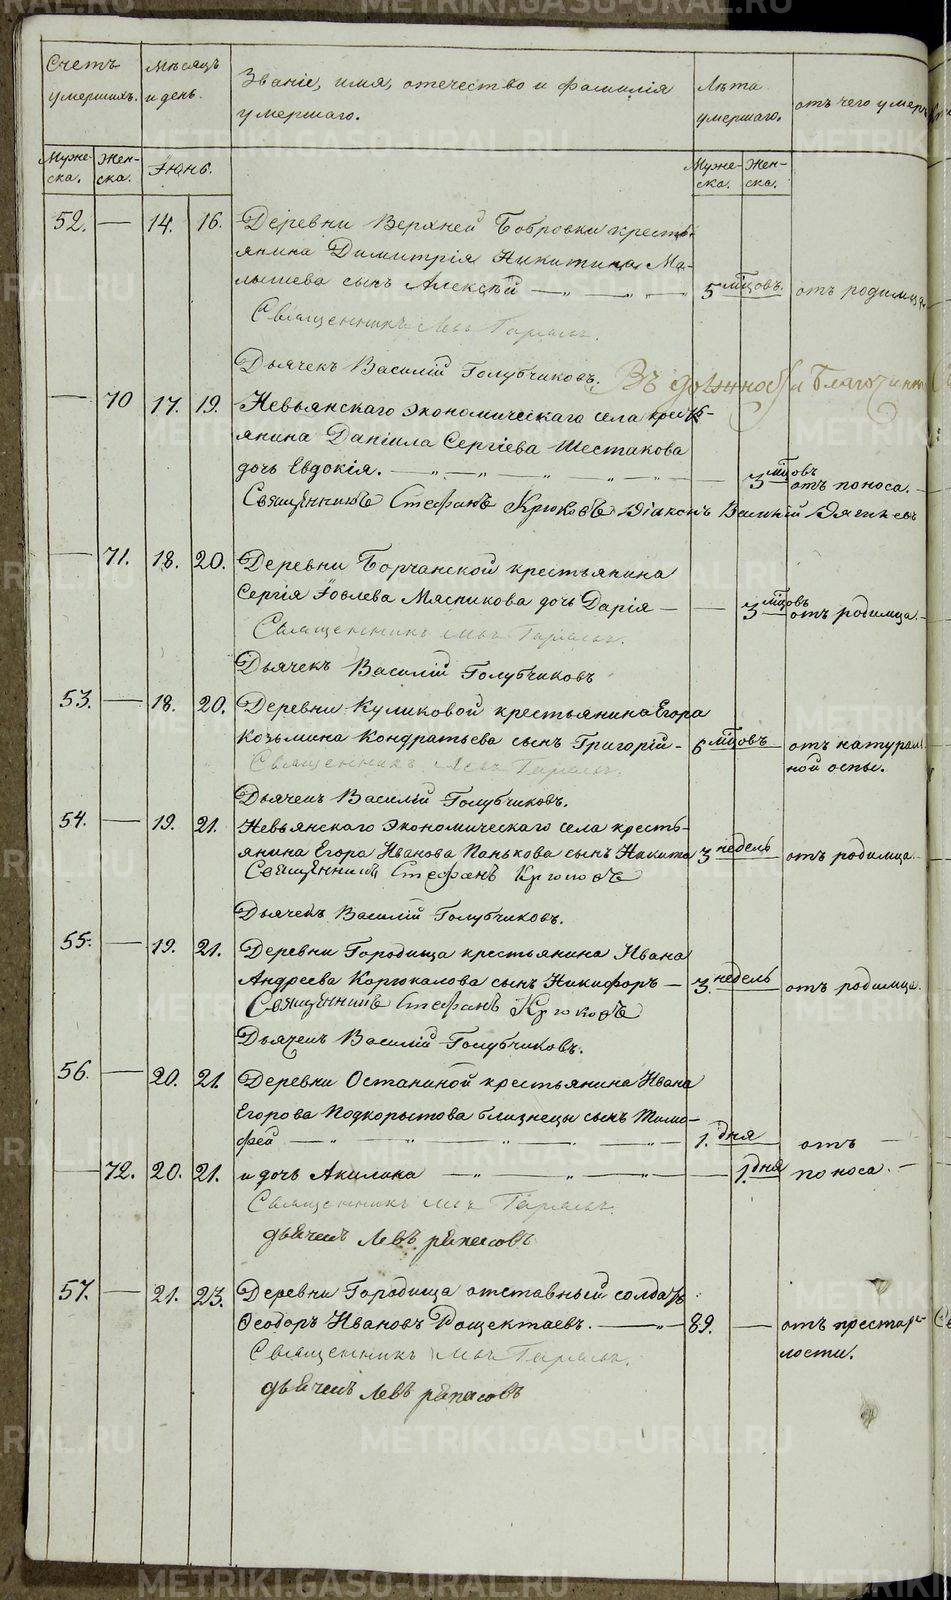 Счетъ умершихъ.
Мѣсяцъ и день.
Званіе, имя, отечество и фамилія умершаго.
Лѣта умершаго.
отъ чего умеръ
Муже-ска. Жен-ска. Іюнь. Муже-ска. Жен-ска.
52. — 14. 16. Деревни Верхней Бобровки кресть-
янина Димитрія Никитина Ма-
лышева сынъ Алексѣй — 5 мцовъ. отъ родимца.
Священникъ Левъ
Дьячекъ Василій Голубчиковъ.
Въ должности Благочинн
— 70 17. 19. Невьянскаго экономическаго села кресть-
янина Даніила Сергіева Шестакова
дочь Евдокія. — 3 мцовъ отъ поноса.
Священникъ Стефанъ Крюковъ Діаконъ Василій
— 71. 18. 20. Деревни Борчанской крестьянина
Сергія Іовлева Мясникова дочь Дарія — — 3 мцовъ отъ родимца.
Священникъ Левъ
Дьячекъ Василій Голубчиковъ
53. — 18. 20. Деревни Куликовой крестьянина Егора
Козьмина Кондратьева сынъ Григорій - 6 мцовъ отъ натураль
ной оспы.
Священникъ Левъ
Дьячекъ Василій Голубчиковъ.
54. — 19. 21. Невьянскаго экономическаго села кресть-
янина Егора Иванова Панькова сынъ Никита 3 недель отъ родимца
Священникъ Стефанъ Крюковъ
Дьячекъ Василій Голубчиковъ.
55. — 19. 21. Деревни Городища крестьянина Ивана
Андреева Корюкалова сынъ Никифоръ — 3. недель отъ родимца.
Священникъ Стефанъ Крюковъ
Дьячекъ Василій Голубчиковъ.
56. — 20. 21. Деревни Останиной крестьянина Ивана
Егорова Подкорытова близнецы сынъ Тимо-
фей — 1. дня отъ —
— 72. 20. 21. и дочь Акилина — — 1. дня поноса. —
Священникъ Левъ
дьячекъ Левъ
57. — 21. 23. Деревни Городища отставный солдатъ
Ѳеодоръ Ивановъ Рощектаевъ. — 89. — отъ престаре-
лости.
Священникъ Левъ
дьячекъ Левъ
METRIKI.GASO-URAL.RU